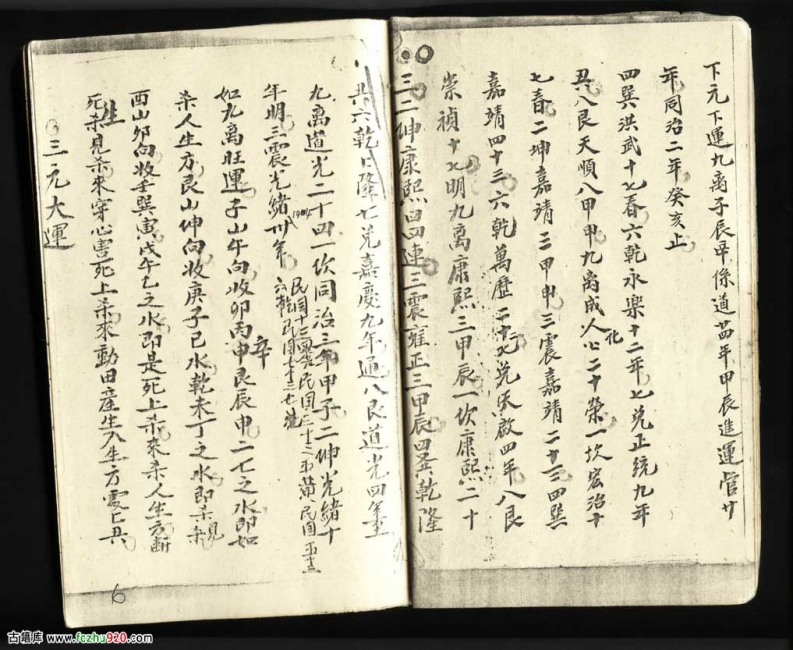 下元下運九离子辰辛係道光廿四年甲辰進運管廿
年同治二年癸亥止
四巽洪武十七春六乾永樂十二年七兑正統九年
八艮天順八甲申九离成化二十榮一坎宏治十
七春二坤嘉靖三甲申三震嘉靖二十三四巽
嘉靖四十三六乾萬歷三十二七兑天啟四年八艮
崇禎十七明九离康熙三甲辰一坎康熙二十
三二坤康熙四四連三震雍正三甲辰四巽乾隆
六乾上隆七兑嘉慶九年通八艮道光四年
九离道光二十四一坎同治三年甲子二坤光緒十
年明三震光緒卅年
1904
民国十三四巽民国三十三五黄民国五十三
六乾民国七十三七兑
如九离旺運子山午向收卯丙申艮辰申二七之水即如
辛
杀人生方艮山坤向收庚子巳水乾未丁之水即杀見
酉山卯向收壬巽寅戌午乙之水即是死上杀來杀人生方断
生
死杀見杀來穿心害死上杀來動田産生入生方
三元大運
6
古籍库 www.fczhu920.com